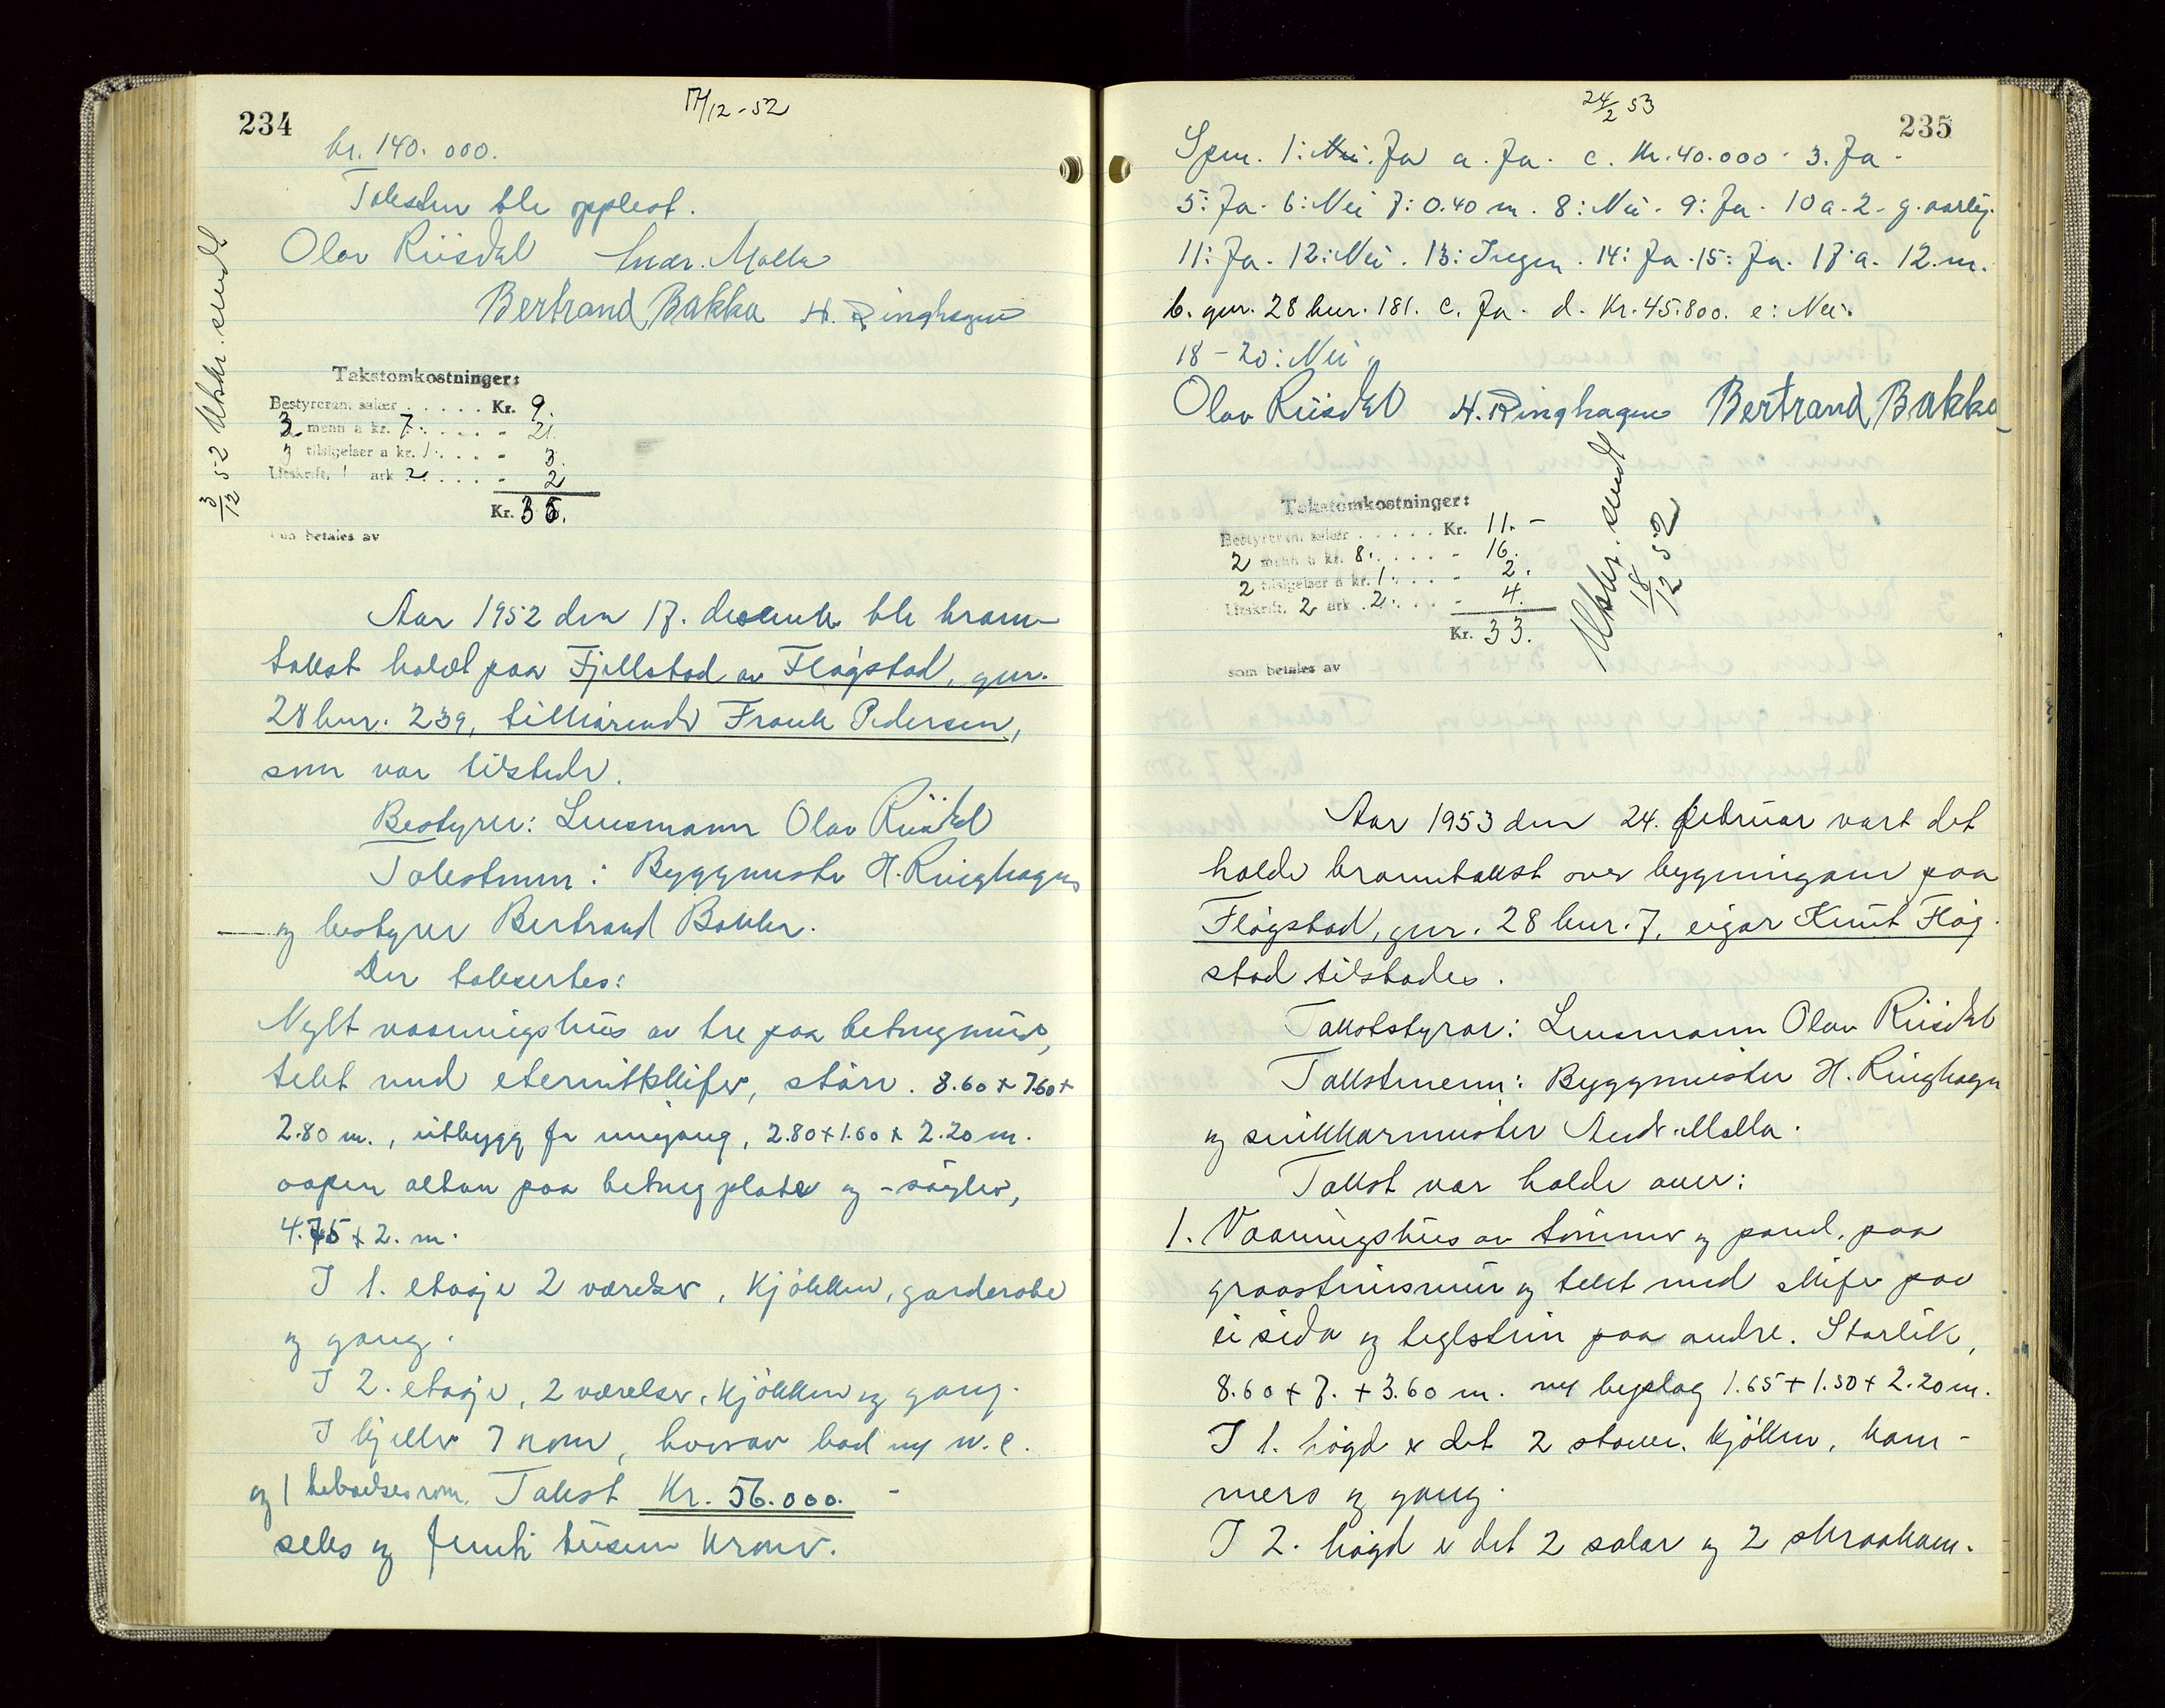 234
17/12-52
kr. 140.000.
Taksten ble opplest.
Olav Riisdal Andr. Molla
Bertrand Bakka H. Ringhagen
3/12 52 Utskr. sendt
Takstomkostninger:
Bestyreren, salær . . . . . Kr. 9.
3 menn a kr. 7. . . . . - 21.
3 tilsigelser a kr. 1. . . . - 3.
Utskrift, 1 ark 2. . . . . - 2
Kr. 35.
som betales av
Aar 1952 den 17. desember ble brann-
takst holdt paa Fjellstad av Fløgstad, gnr.
28 bnr. 239, tilhørende Frank Pedersen,
som var tilstede.
Bestyrer: Lensmann Olav Riisdal
Takstmenn: Byggmester H. Ringhagen
og bestyrer Bertrand Bakka.
Der taksertes:
Nytt vaaningshus av tre paa betongmur,
tekt med eternittskifer, störr. 8.60 + 7.60 +
2.80 m., utbygg for inngang, 2.80 + 1.60 + 2.20 m.
aapen altan paa betongplate og -søyler,
4.75 + 2. m.
I 1. etasje 2 værelser, kjökken, garderobe
og gang.
I 2. etasje, 2 værelser, kjökken og gang.
I kjeller 7 rom, hvorav bad og w.c.
og 1 beboelsesrom. Takst Kr. 56.000. -
seks og femti tusen kroner.
24/2 53
235
Spm. 1: Nei. Ja a. Ja. c. Kr. 40.000. 3. Ja.
5: Ja. 6: Nei 7: 0.40 m. 8: Nei. 9: Ja. 10 a. 2. g. aarlig.
11: Ja. 12: Nei. 13: Ingen. 14: Ja. 15: Ja. 17: a. 12. m.
b. gnr. 28 bnr. 181. c. Ja. d. Kr. 45.800. e: Nei.
18 - 20: Nei.
Olav Riisdal H. Ringhagen Bertrand Bakka
Takstomkostninger:
Bestyreren, salær . . . . . Kr. 11. -
2 menn a kr. 8. . . . . - 16.
2 tilsigelser a kr. 1. . . . - 2.
Utskrift, 2 ark 2. . . . - 4.
Kr. 33.
som betales av
Utskr. sendt
18/12 52
Aar 1953 den 24. februar vart det
halde branntakst over bygningane paa
Fløgstad, gnr. 28 bnr. 7, eigar Knut Fløg-
stad tilstades.
Takststyrar: Lensmann Olav Riisdal
Takstmenn: Byggmeister H. Ringhagen
og snikkarmeister Andr. Molla.
Takst var halde over:
1. Vaaningshus av tömmer og panel, paa
graasteinsmur og tekt med skifer paa
ei sida og teglstein paa andre. Storleik,
8.60 + 7. + 3.60 m. med bislag 1.65 + 1.50 + 2.20 m.
I 1. högd er det 2 stover, kjökken, kam-
mers og gang.
I 2. högd er det 2 salar og 2 skraakam-